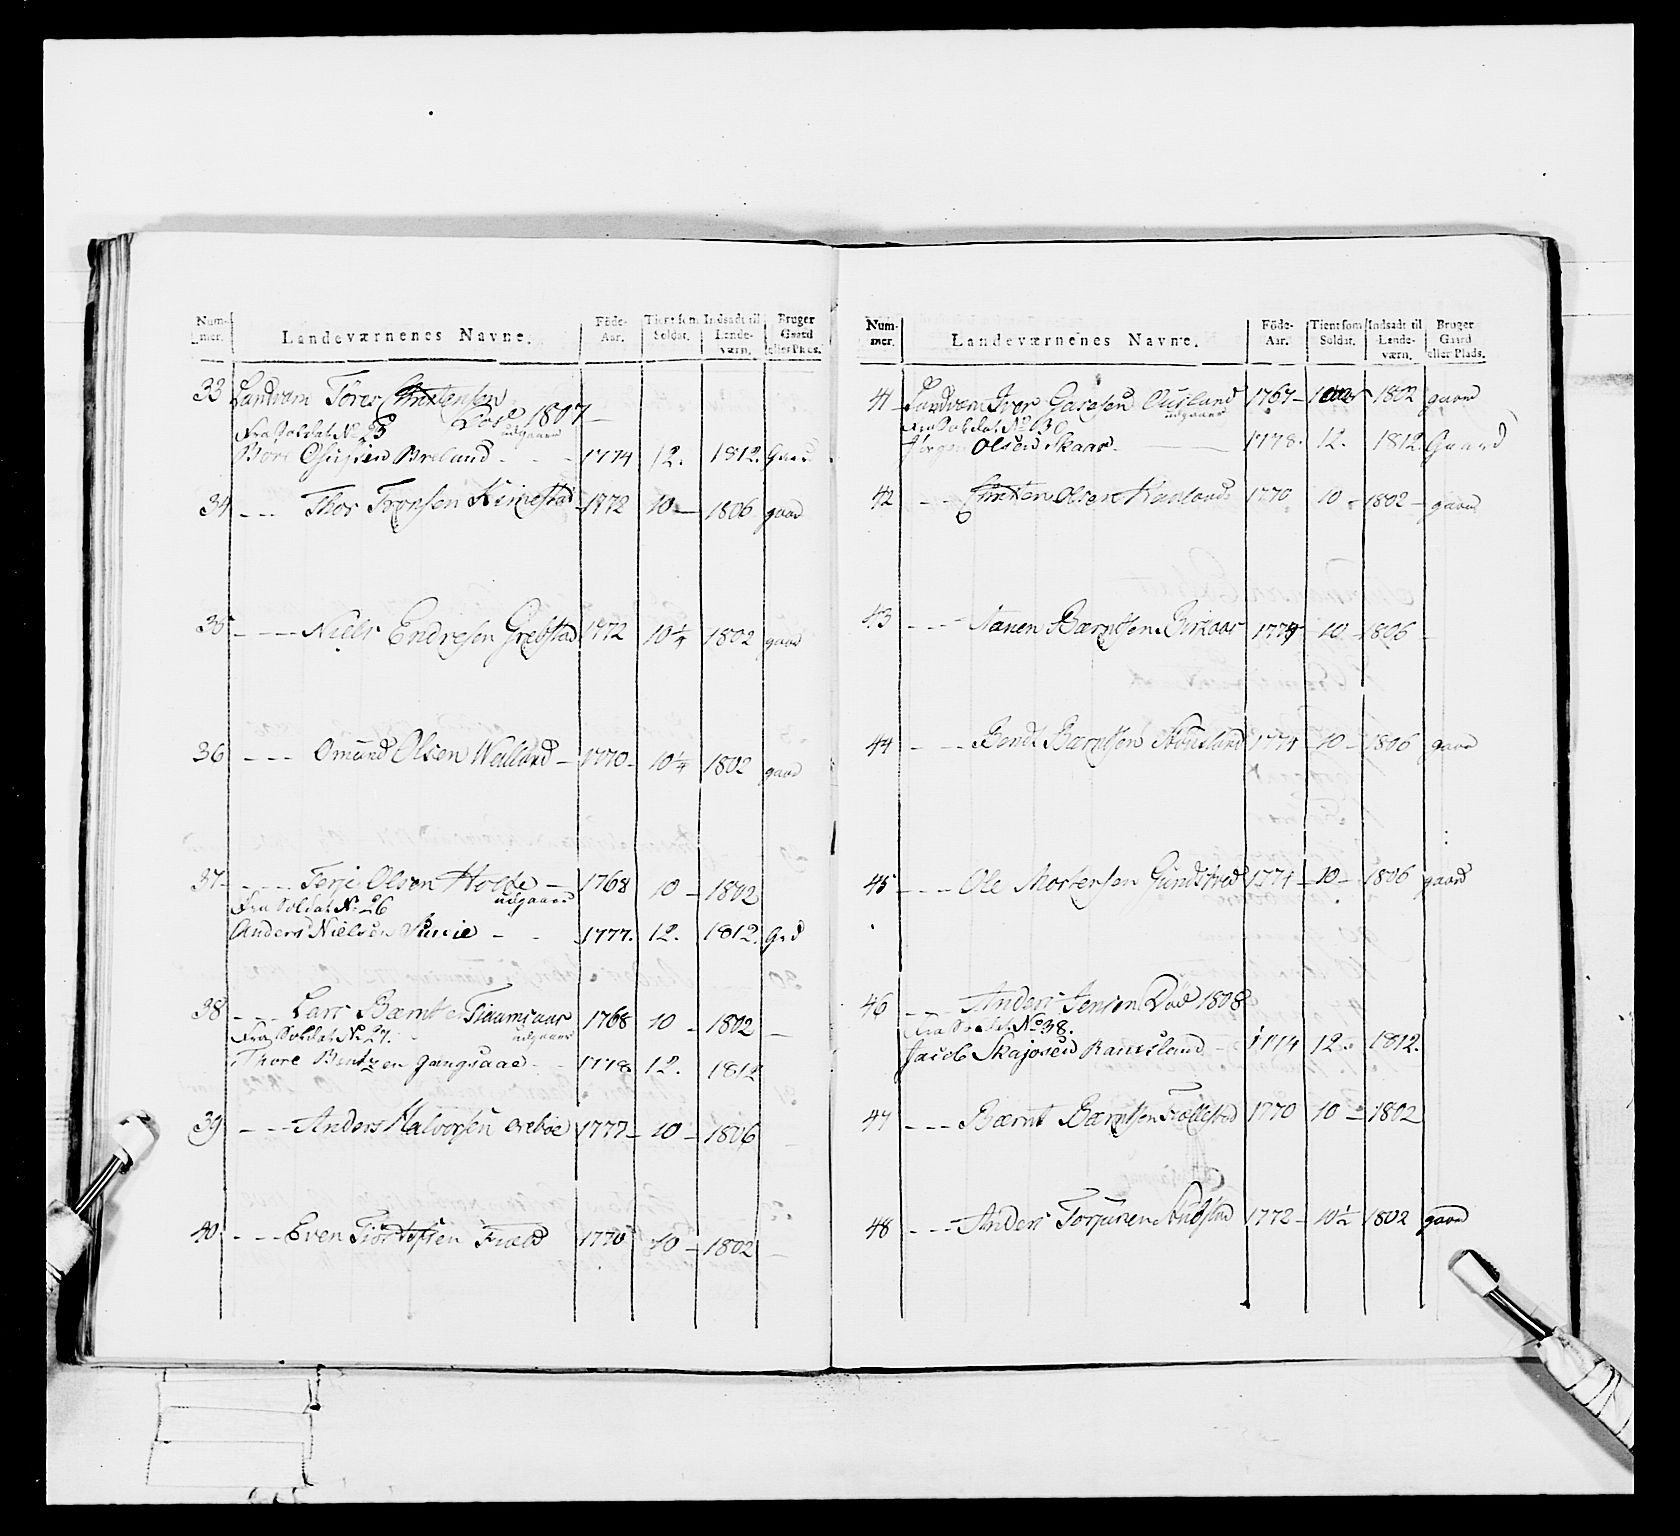 Num-mer. Landeværnenes Navne. Föde-Aar. Tient som Soldat. Indsadt til Lande-værn. Bruger Gaard eller Plads.
33 Landværn Tores Christensen
Död 1807 —
Fra Soldat No 23 udgaaed
Bore Breland - - 1774 12. 1812. Gaard
34 - - - Thor Tronsen 1772 10 — 1806 gaard
35 - - - Niels Endresen Grebstad 1772 10¼ 1802 gaard
36 - - - Omund Olsen Walland — 1770 - 10¼ 1802 gaard
37 - - - Terje Olsen Holte — 1768 10 - 1802
Fra Soldat No 26 udgaaed
Anders Nielsen - - 1777. 12. 1812. Grd
38 - - - Lars Bærntsen 1768 10 - 1802 -
Fra Soldat No 27. udgaaed
Thore Bentzen 1778. 12. 1812
39 - - - Anders Halvorsen 1777 - 10 - 1806 -
40 - - - Even 1770 10 - 1802 -
Num-mer. Landeværnenes Navne. Föde-Aar. Tient som Soldat. Indsadt til Lande-værn. Bruger Gaard eller Plads.
41 Landværn Iver Ousland 1767 - 1802 gaard
Fra Soldat No 30 udgaaed
Jörgen Olsen Skaar - 1778. 12. 1812. Gaard
42 - - - Christen Olsen 1770 10 - 1802 - gaard
43 - - - Nanen Bærntsen Birkaas 10 - 1806 -
44 - - - Bendt Bærntsen 1774 - 10 - 1806 gaard
45 - - - Ole Mortensen 1774 - 10 - 1806 gaard
46 - - - Anders Jensen Död 1808
Fra Soldat No 38.
Jacob 1774 12. 1812.
47 - - - Bærnt Bærntsen 1770 10 - 1802
48 - - - Anders Torjusen 1772 - 10½ 1802 gaard